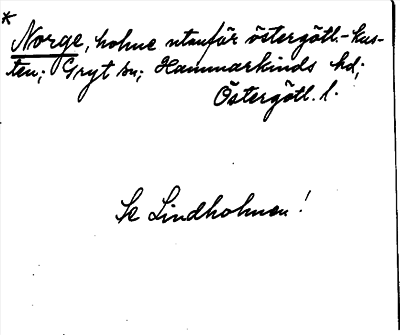 *
Norge, holme utanför östergötl.-kus-
ten; Gryt sn; Hammarkinds hd;
Östergötl. l.
Se Lindholmen!